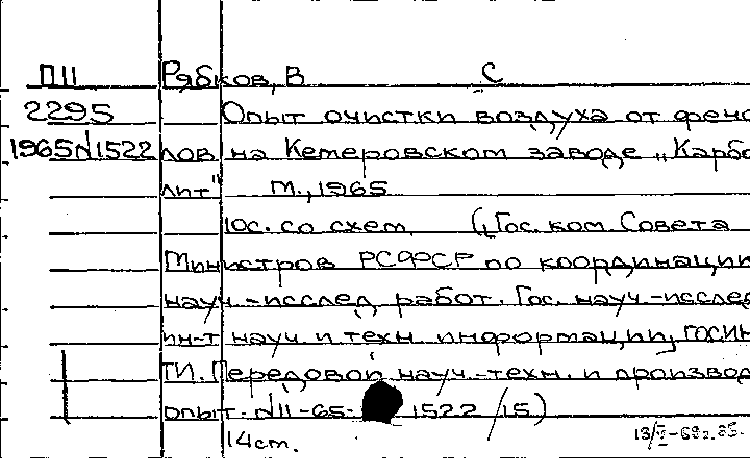 П11 Рябков, В С
2295 Опыт очистки воздуха от фено
1965 N1522 лов на Кемеровском заводе „Карбо
лит" М., 1965
10с. со схем. (Гос. ком. Совета
Министров РСФСР по координации
науч.-исслед работ. Гос. науч-исслед
ин-т науч и техн. информации, ГОСИН
ТИ. Передовой науч.-техн. и производ
опыт. N11-65- 1522/15)
14cm.